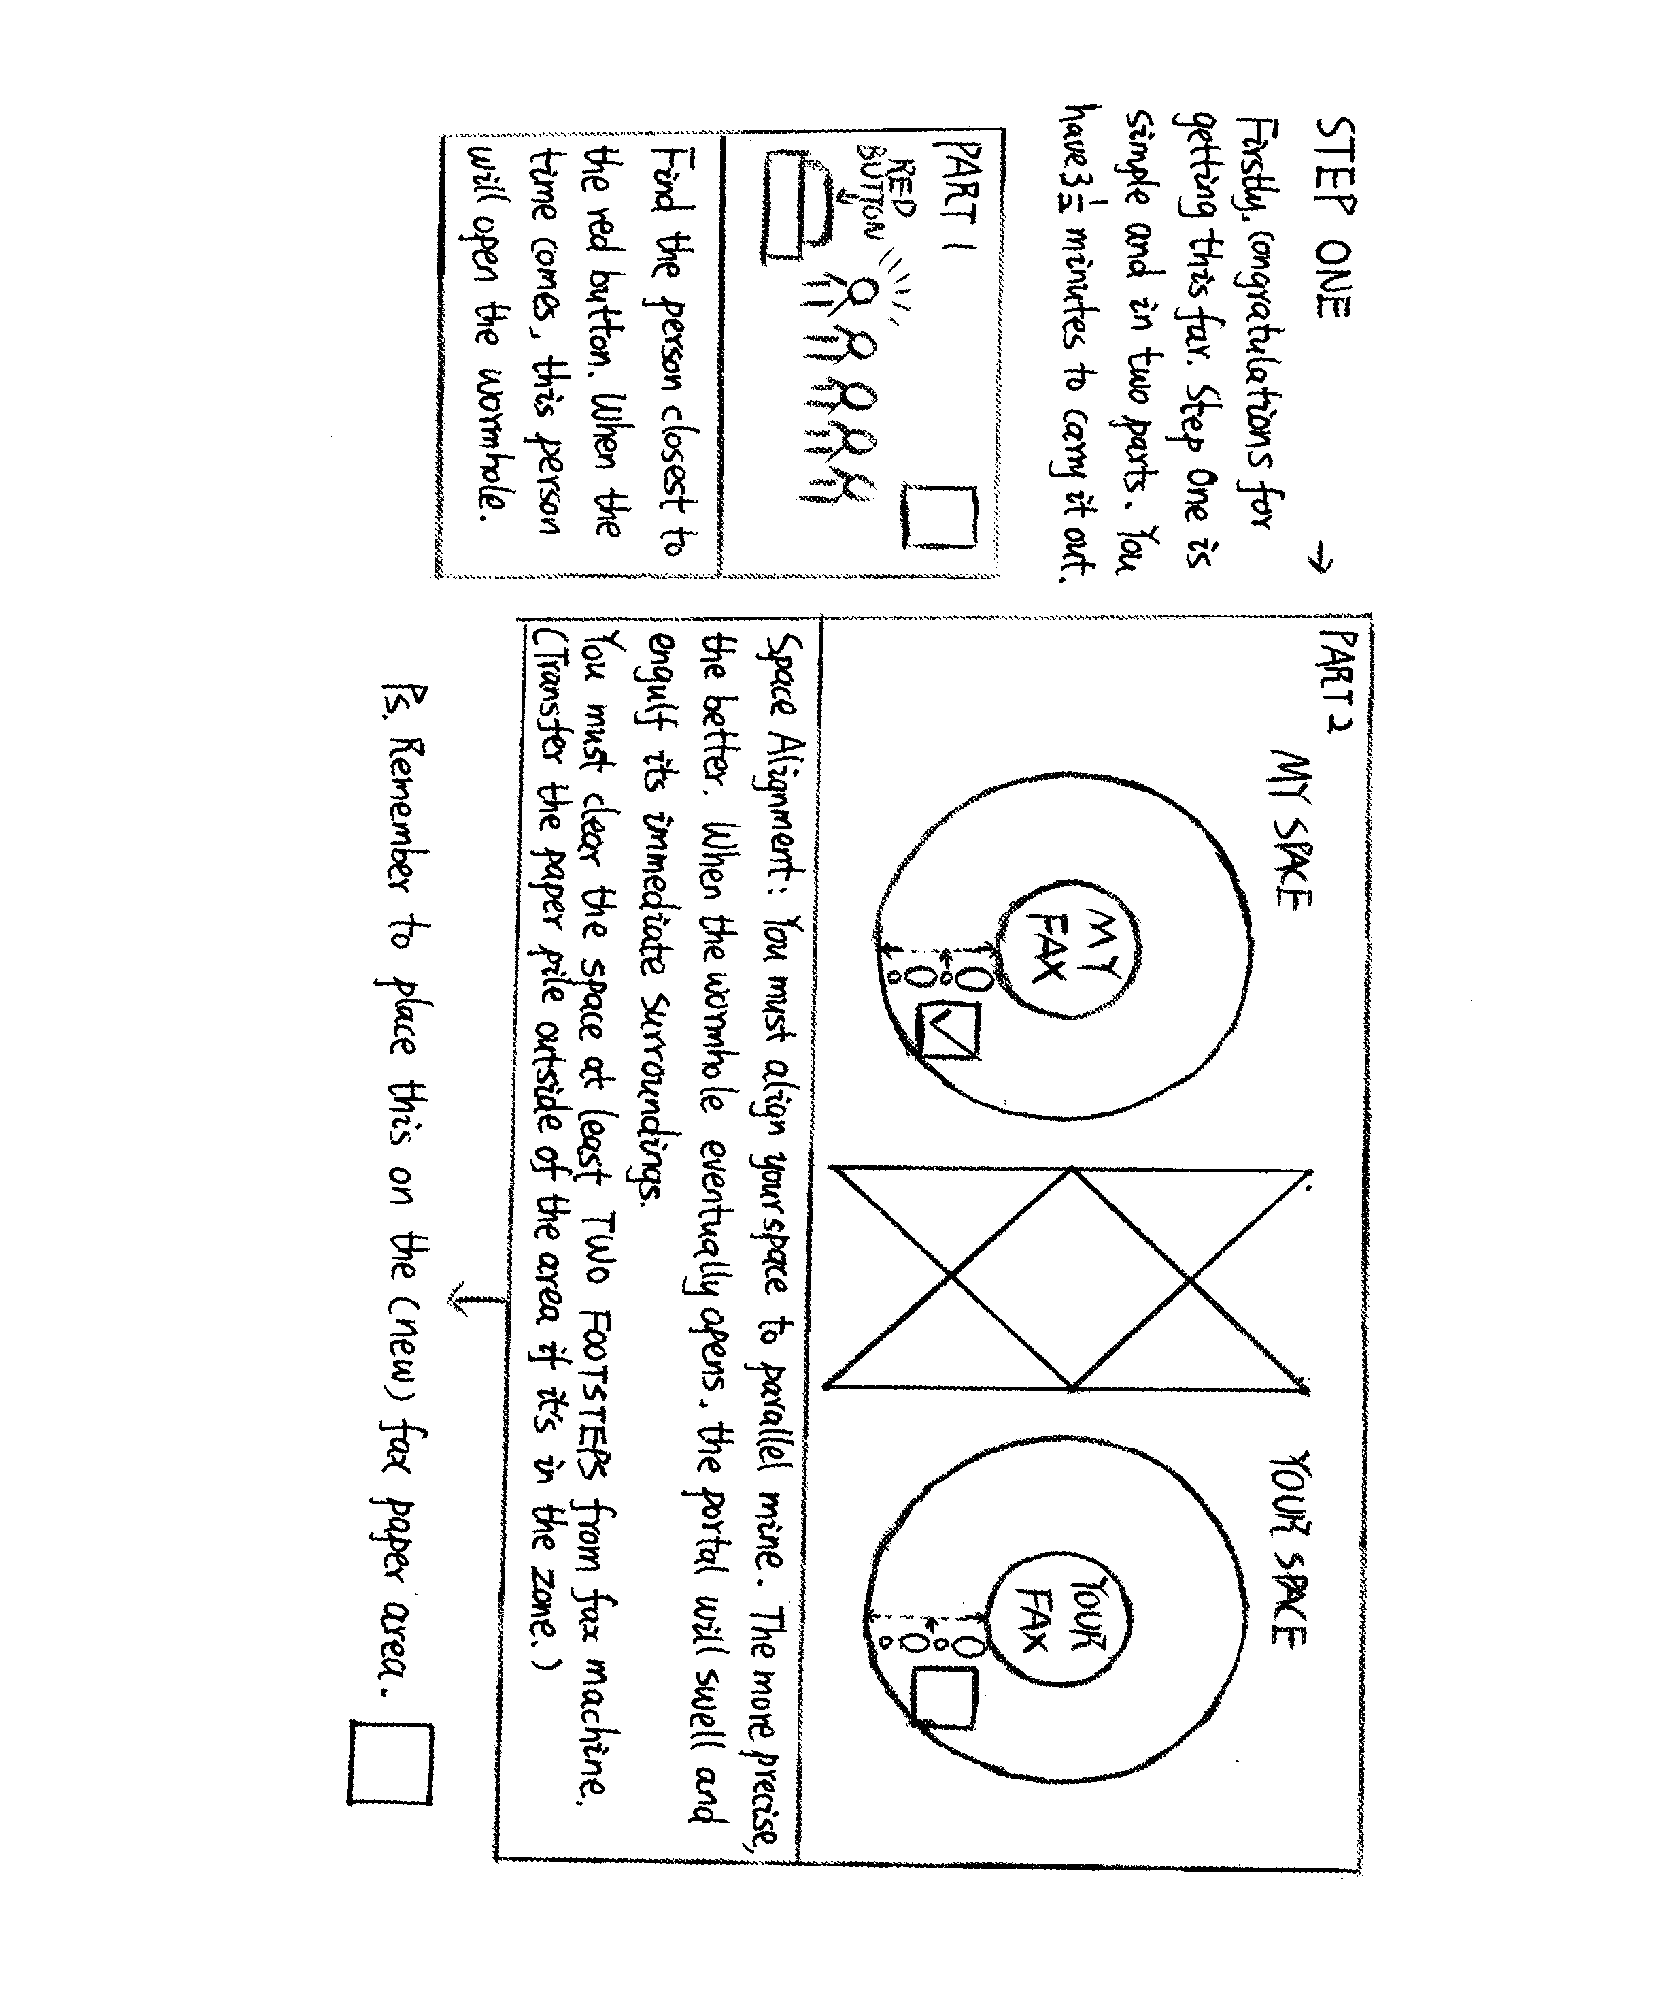 STEP ONE →
Firstly, congratulations for
getting this far. Step One is
simple and in two parts. You
have 3 1/2 minutes to carry it out.
PART 1
RED
BUTTON
Find the person closest to
the red button. When the
time comes, this person
will open the wormhole.
PART 2
MY SPACE
MY
FAX
YOUR SPACE
YOUR
FAX
Space Alignment: You must align your space to parallel mine. The more precise,
the better. When the wormhole eventually opens, the portal will swell and
engulf its immediate surroundings.
You must clear the space at least TWO FOOTSTEPS from fax machine.
(Transfer the paper pile outside of the area if it's in the zone.)
Ps. Remember to place this on the (new) fax paper area.